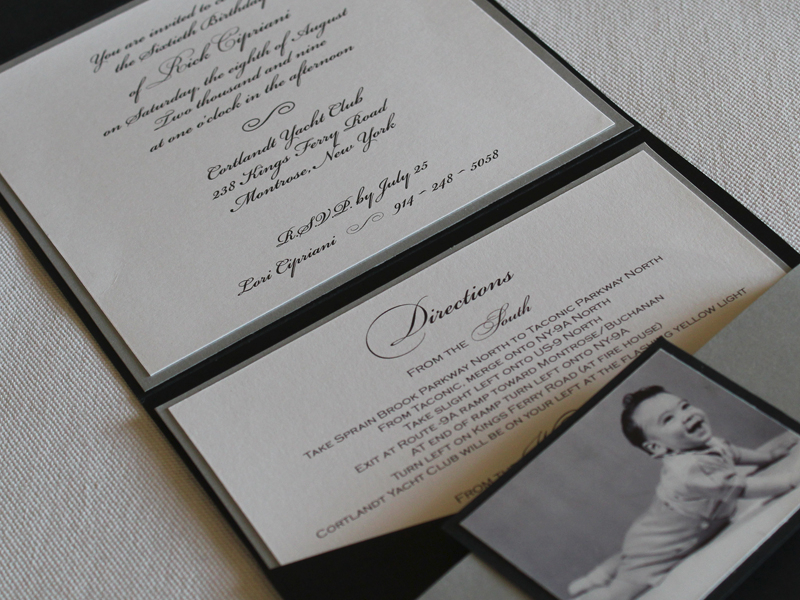 You are invited to
the Sixtieth Birthday
of Rick Cipriani
on Saturday, the eighth of August
Two thousand and nine
at one o'clock in the afternoon
Cortlandt Yacht Club
238 Kings Ferry Road
Montrose, New York
R.S.V.P. by July 25
Lori Cipriani 914 - 248 - 5058
Directions
From the South
Take Sprain Brook Parkway North to Taconic Parkway North
From Taconic, merge onto NY-9A North
Take slight left onto US-9 North
Exit at Route-9A ramp toward Montrose/Buchanan
At end of ramp turn left onto NY-9A
Turn left on Kings Ferry Road (at fire house)
Cortlandt Yacht Club will be on your left at the flashing yellow light
From the